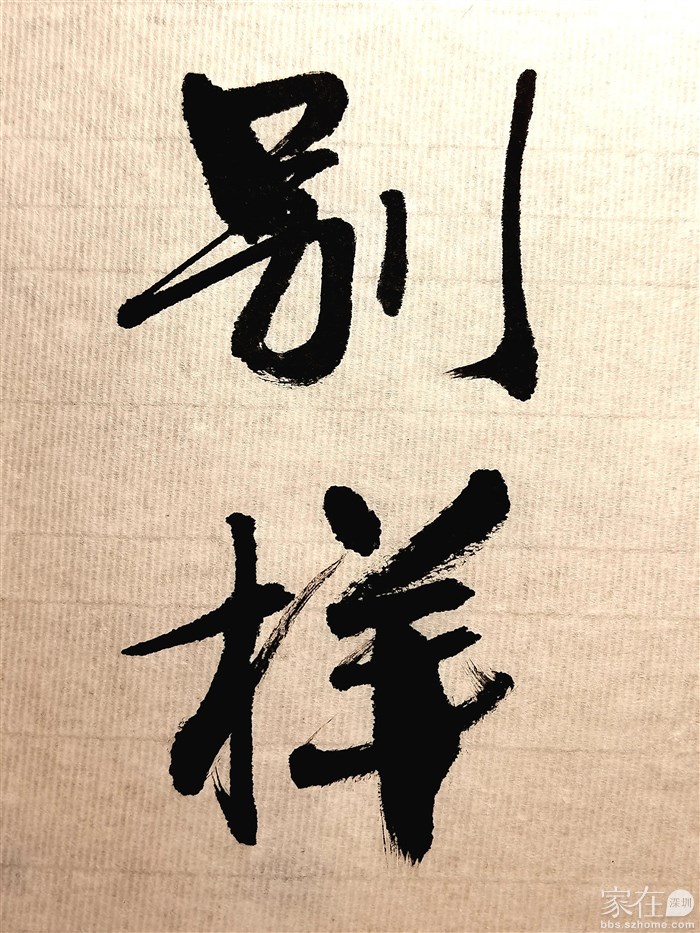 别
样
家在深圳
bbs.szhome.com